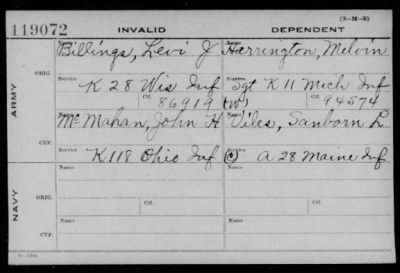 (3-M-5)
119072 INVALID DEPENDENT
Billings, Levi J Harrington, Melvin
ORIG. Service Service
K 28 Wis Inf Sgt K 11 Mich Inf
ARMY Ctf. 86919 (W) Ctf. 94574
McMahan, John H Viles, Sanborn L
CTF. Service Service
K 118 Ohio Inf (C) A 28 Maine Inf
Name Name
ORIG.
NAVY Ctf. Ctf.
Name Name
CTF.